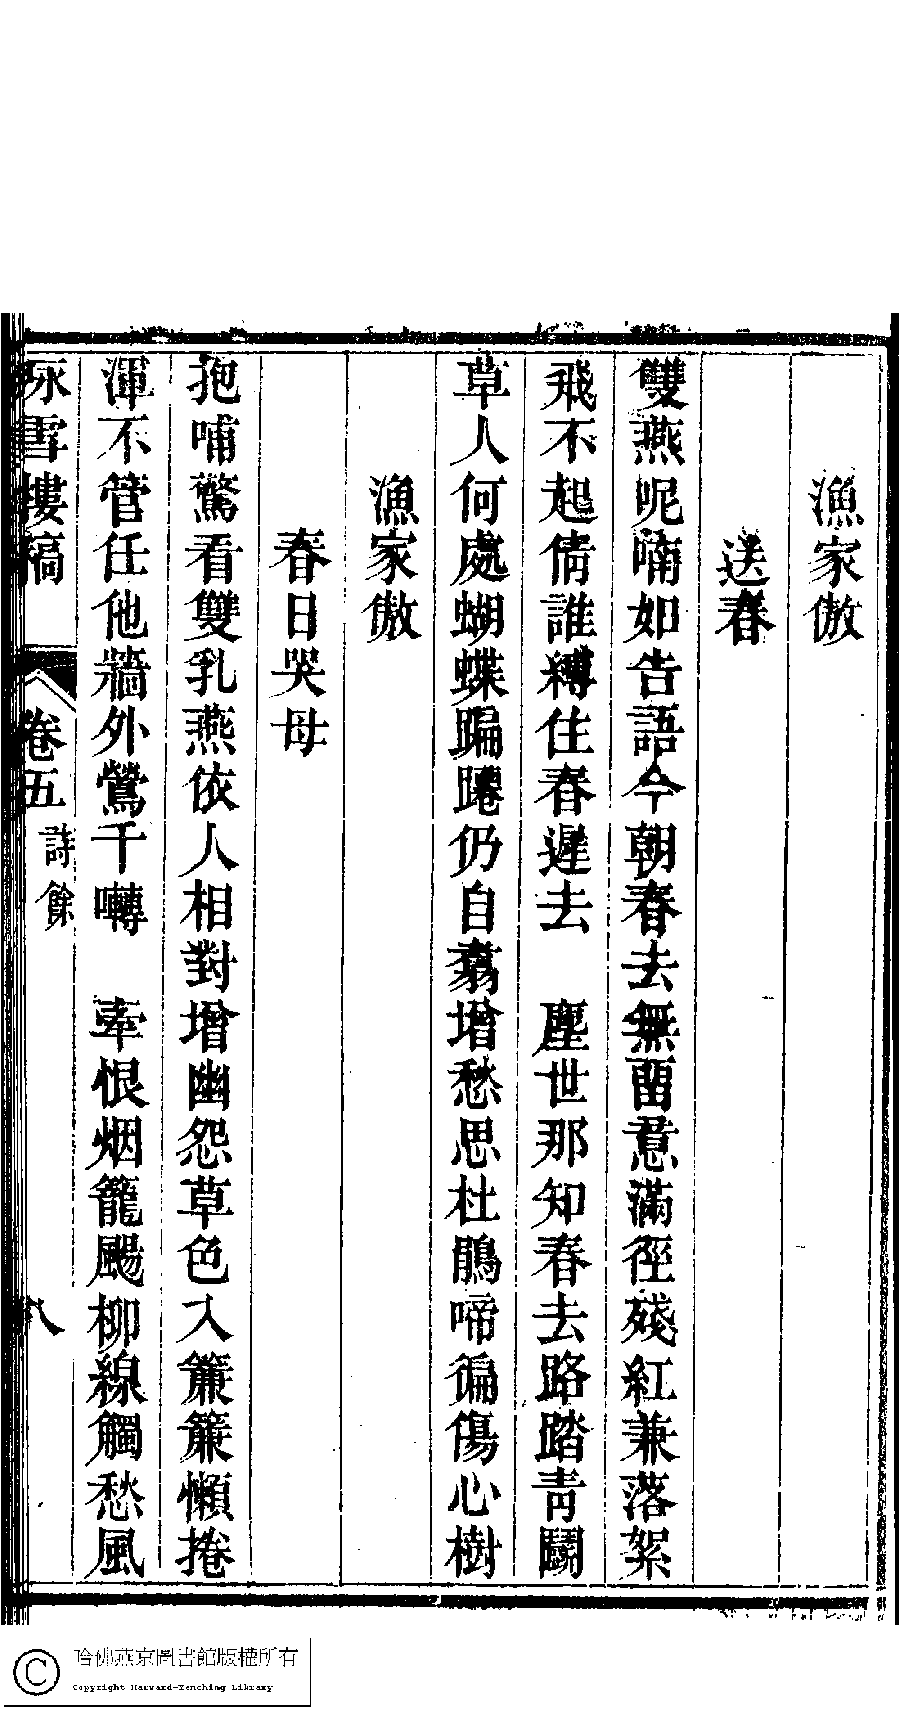 漁家傲
送春
雙燕呢喃如告語今朝春去無畱意滿徑殘紅兼落絮
飛不起倩誰縛住春遲去　塵世那知春去路踏青鬭
草人何處蝴蝶蹁躚仍自翥增愁思杜鵑啼徧傷心樹
漁家傲
春日哭母
抱哺驚看雙乳燕依人相對增幽怨草色入簾簾懶捲
渾不管任他牆外鶯千囀　牽恨烟籠颺柳線觸愁風
琢雪樓稿　卷五　詩餘　八
哈佛燕京圖書館版權所有
Copyright Harvard-Yenching Library